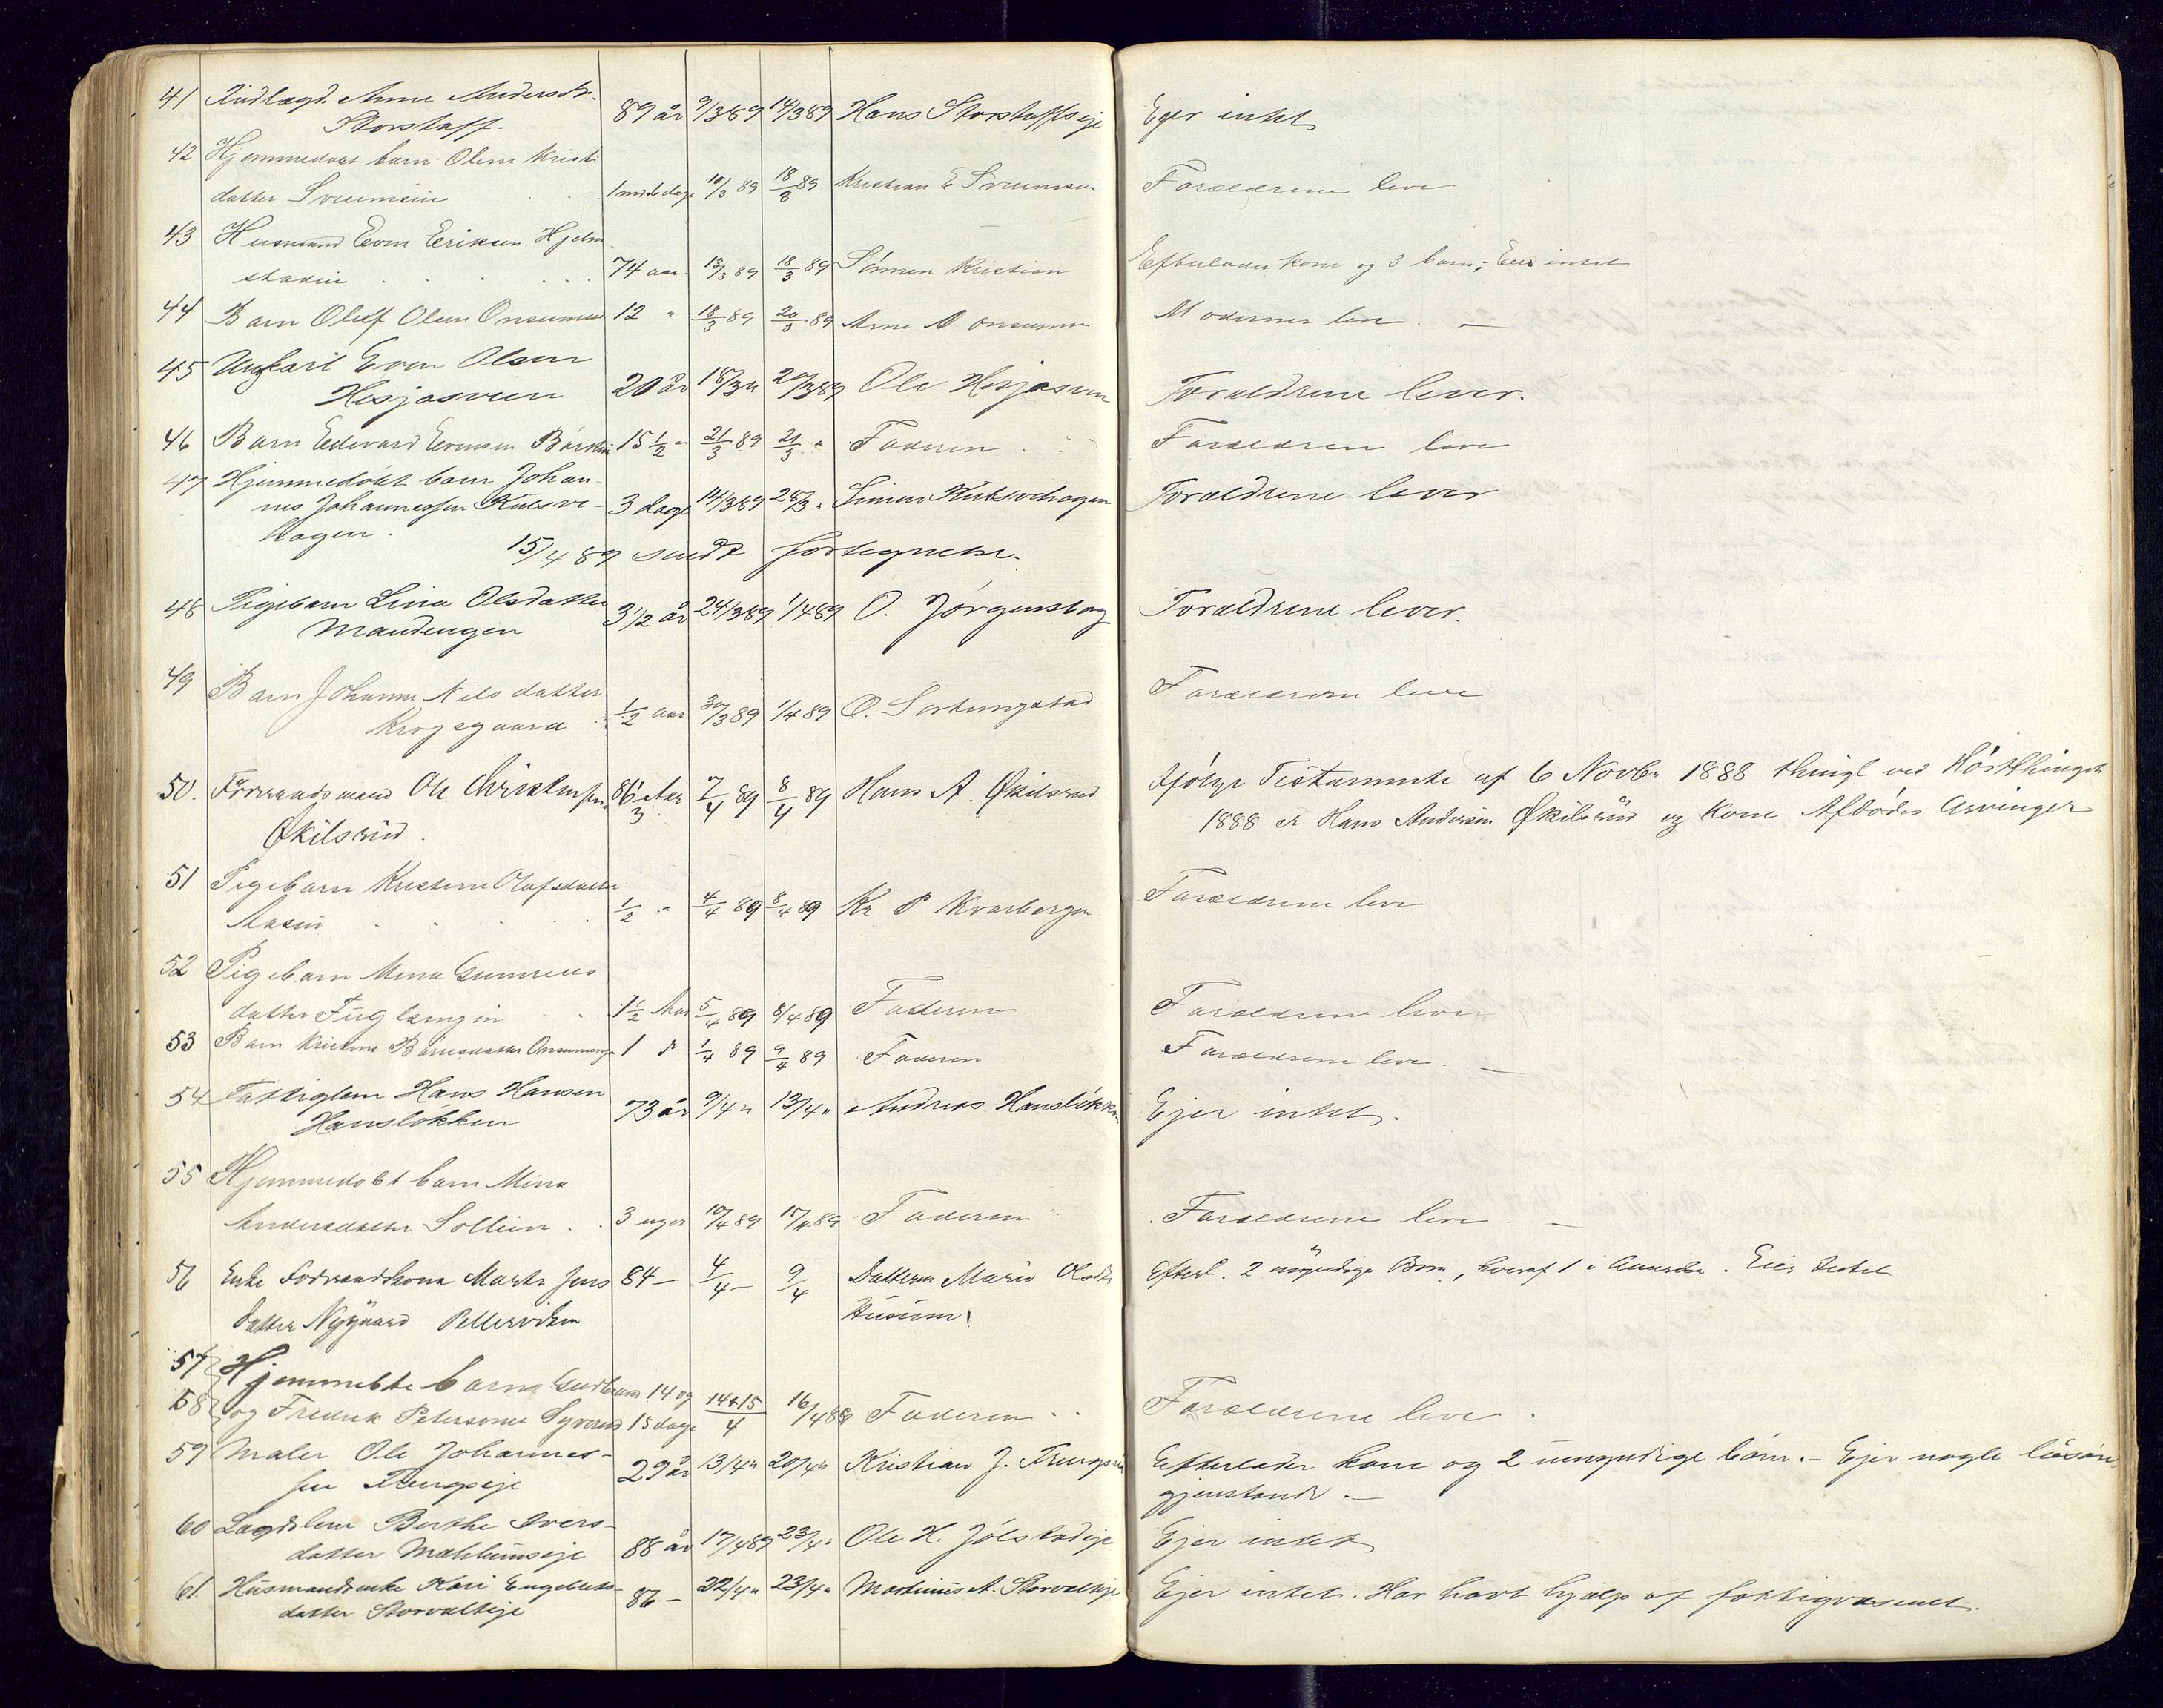 41 Indlagd. Anne Andersdt. 89 år 9/3 89 14/3 89 Hans Storstaffseje Ejer intet
Storstaff.
42 Hjemmedøbt barn Oline Kristi
datter Sveumseie 1 md dage 10/3 89 18/3 89 Kristian E Sveumseie Forældrene leve
43 Husmand Even Eriksen Hjelm
stadeie 74 aar 13/3 89 18/3 89 Kristian Efterlader kone og 3 barn; Eier intet
44 Barn Oluf Olsen Onsumeie 12 " 18/3 89 20/3 89 Arne Onsumeie Moderen leve. —
45 Ungkarl Even Olsen
Hesjasveen 20 år 18/3 " 20/3 89 Ole Hesjasveen Forældrene lever.
46 Barn Edevard Evensen 15 1/2 " 21/3 89 21/3 " Faderen Forældrene leve
47 Hjemmedøbt barn Johan-
nes Johannessen Kulsve- 3 dage 14/3 89 28/3 " Simen Kulsvehagen Forældrene lever
hagen.
15/4 89 sendt fortegnelse.
48 Pigebarn Lina Olsdatter 3 1/2 år 24/3 89 1/4 89 O. Jørgenstag Forældrene lever.
Maudengen
49 Barn Johanne Nilsdatter
Krogsgaard 1/2 aar 30/3 89 1/4 89 O. Sortungstad Forældrene leve
50. Føderaadsmand Ole Christensen 86 1/3 Aar 7/4 89 8/4 89 Hans A. Økilsrud Ifølge Testamente af 6 Novbr 1888 thingl ved Høstthinget
Økilsrud. 1888 er Hans Andersen Økilsrud og Kone Afdødes Arvinger
51 Pigebarn Kristine Olafsdatter
Aaseie 1/2 " 4/4 89 8/4 89 Kr P Kvarbergen Forældrene leve
52 Pigebarn Mina Gunerius
datter Fuglengen 1 1/2 Aar 5/4 89 8/4 89 Faderen Forældrene leve
53 Barn Kristine Onsumenge 1 d 1/4 89 9/4 89 Faderen Forældrene leve. —
54 Fattiglem Hans Hansen
Hansløkken 73 år 9/4 " 13/4 " Andreas Hansløkken Ejer intet.
55 Hjemmedøbt barn Mina
Andersdatter Sollien 3 uger 10/4 89 15/4 89 Faderen Forældrene leve. —
56 Enke Føderaadskone Marte Jens 84 — 4/4 — 9/4 Datteren Marie Olsdtr Efterl. 2 myndige Børn, hvoraf 1 i Amerika. Eier Intet
datter Nygaard Pellerviken Husum
57 Hjemmebte barn Gudbrand 14 og 14+15/4 16/4 89 Faderen Forældrene leve.
58 og Fredrik Petersønner Syverud 15 dage
59 Maler Ole Johannes- 29 år 13/4 " 20/4 " Kristian J. Efterlader kone og 2 umyndige børn. — Ejer nogle løsøre
sen gjenstande. —
60 Lægdslem Berthe Ivers-
datter Mæhlumseje 88 år 17/4 89 23/4 " Ole H. Jølstadeje Ejer intet
61. Husmandsenke Kari Engebrets-
datter Storvolteje 86 — 22/4 " 23/4 " Martinius A. Storvolteje Ejer intet. Har havt hjælp af fattigvæsenet.